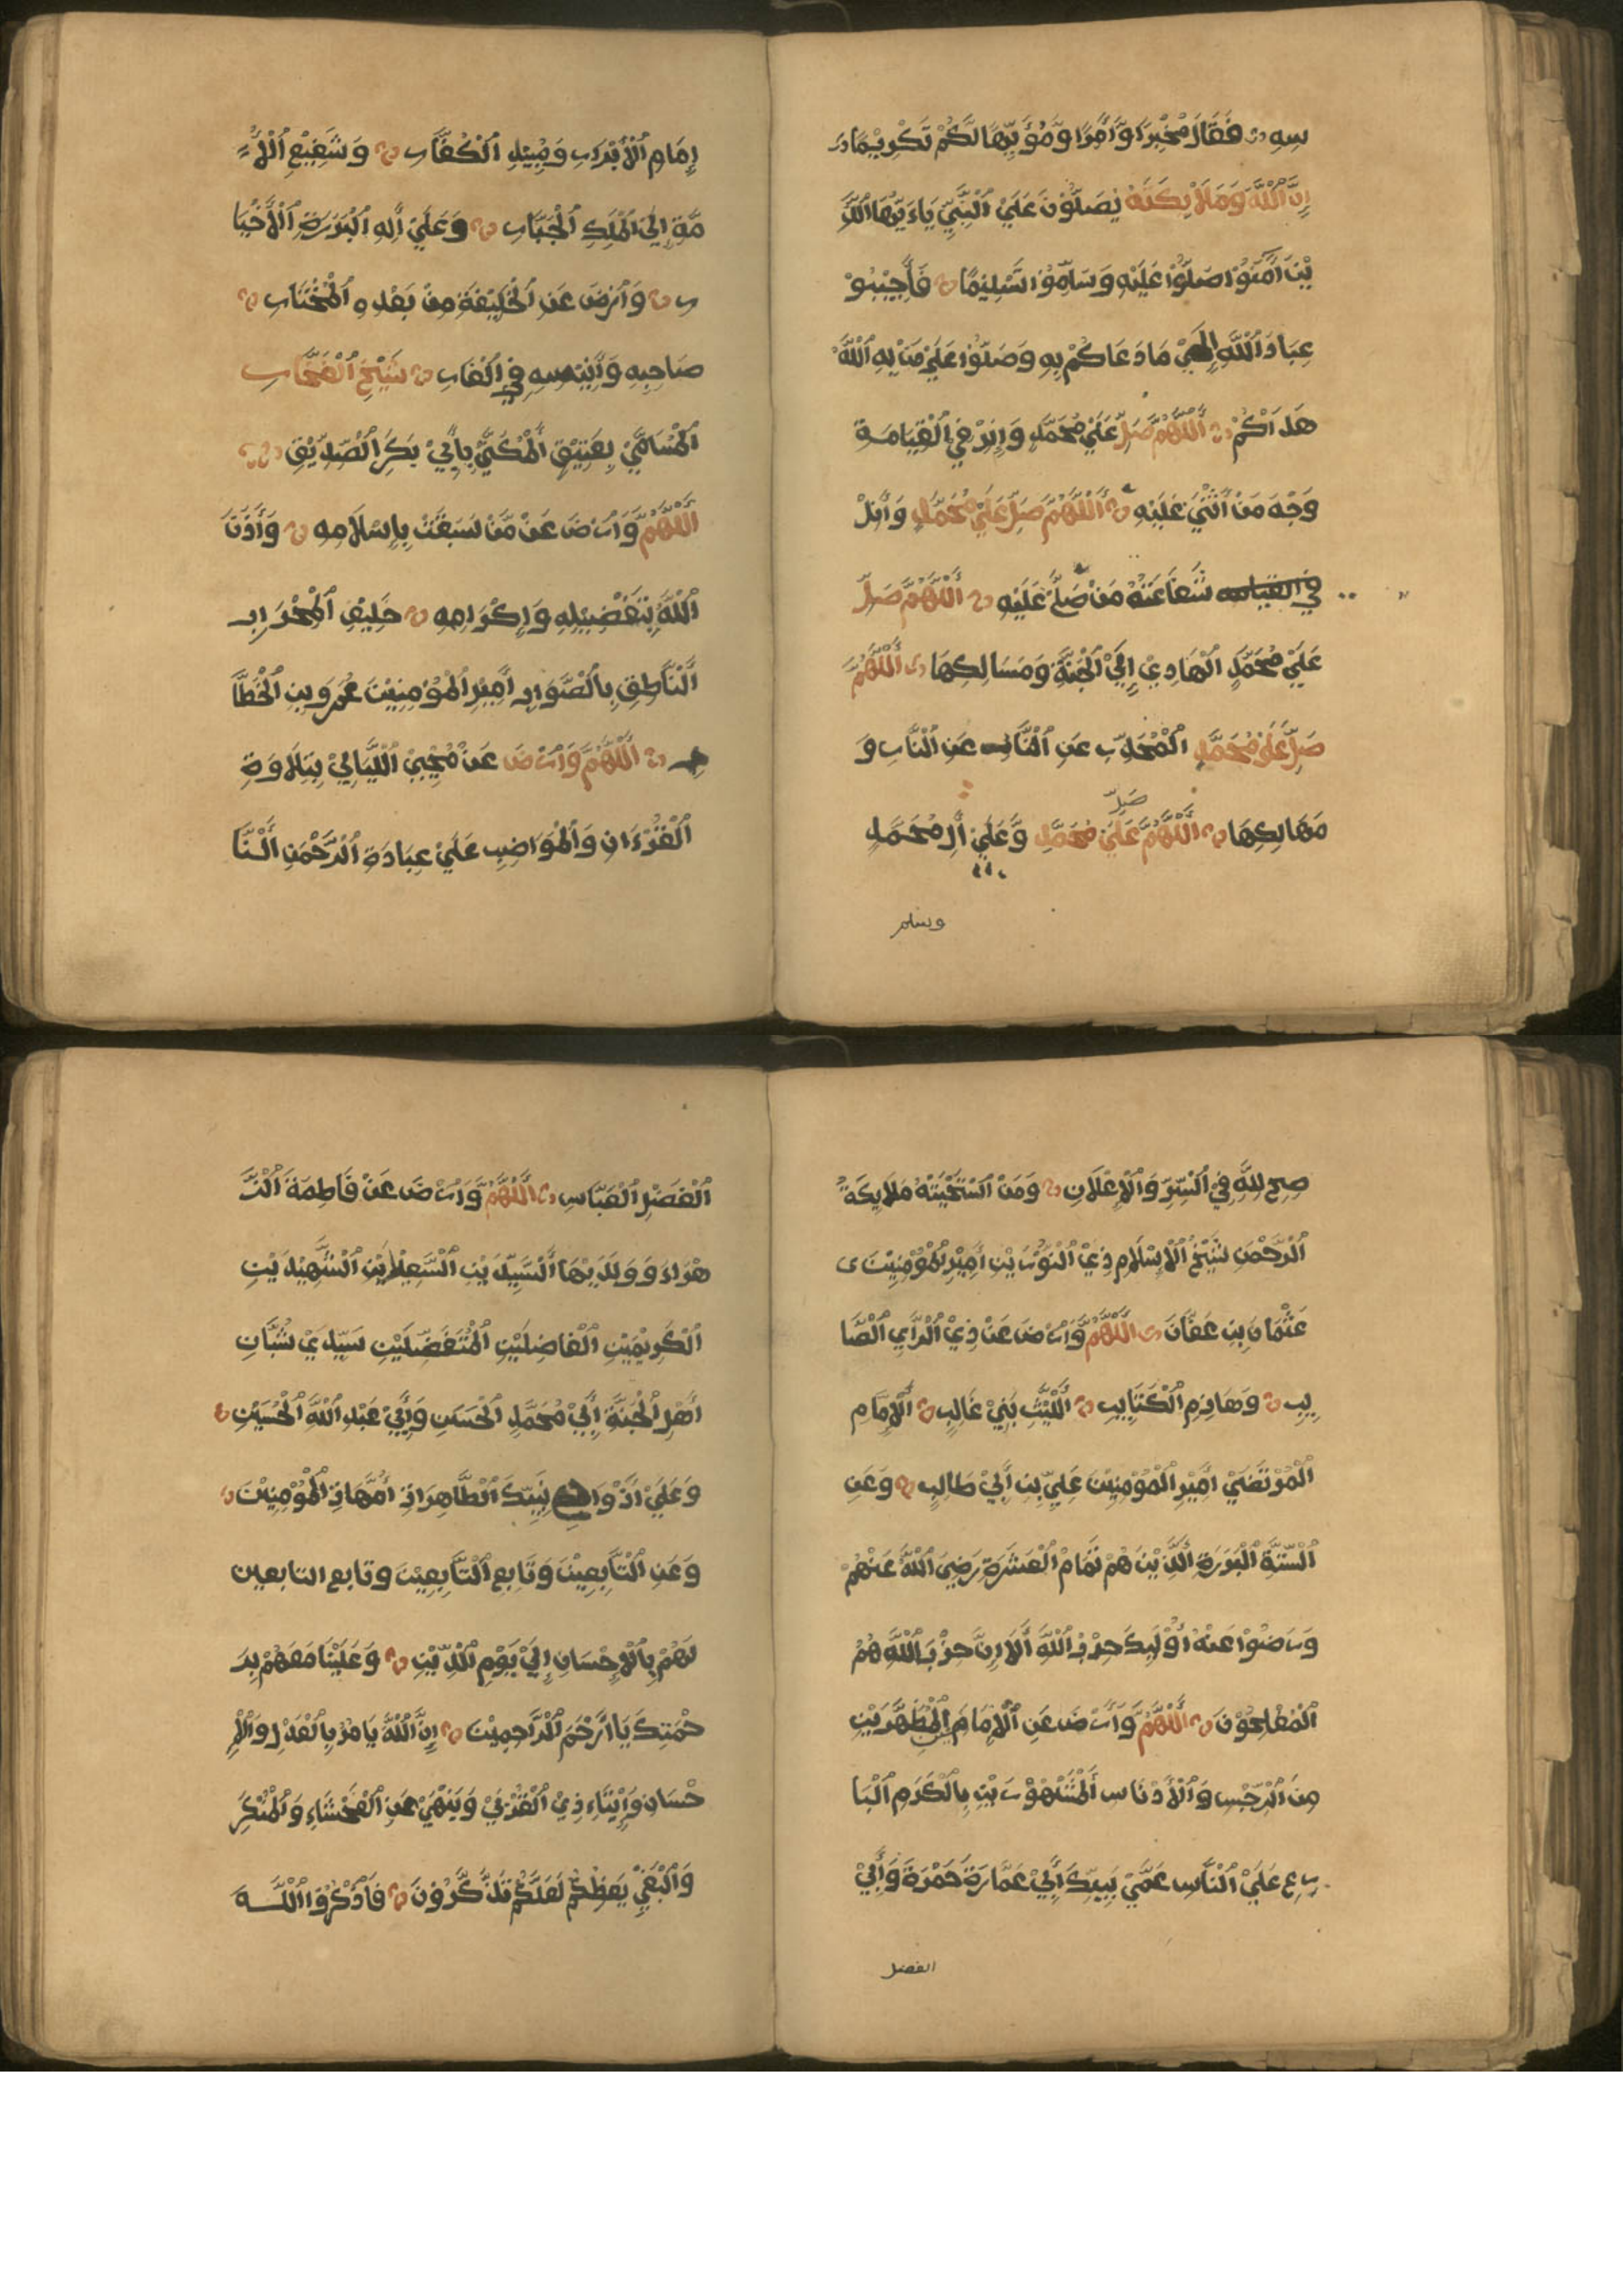 سِهِ فَقَالَ مُخْبِرًا وَّاٰمِرًا وَّمُؤَيِّهًا لَّكُمْ تَكْرِيْمًا
إِنَّ اللّٰهَ وَمَلَائِكَتَهُ يُصَلُّوْنَ عَلَي النَّبِيِّ يَاءَيُّهَا الَّذِ
يْنَ اٰمَنُوْا صَلُّوْا عَلَيْهِ وَسَلِّمُوْا تَسْلِيْمًا فَأَجِيْبُوْ
عِبَادَ اللّٰهِ إِلَيْ مَا دَعَاكُمْ بِهِ وَصَلُّوْا عَلَيْ مَنْ بِهِ اللّٰهُ
هَدَاكُمْ اَللّٰهُمَّ صَلِّ عَلَيْ مُحَمَّدٍ وَابْنِ فِي الْقِيَامَةِ
وَجْهَ مَنْ أَثْنَيْ عَلَيْهِ اَللّٰهُمَّ صَلِّ عَلَيْ مُحَمَّدٍ وَأَنِلْ
في القيامه شَفَاعَتَهُ مَنْ صَلَّ عَلَيْهِ اَللّٰهُمَّ صَلِّ
عَلَيْ مُحَمَّدٍ الْهَادِيْ إِلَيْ الْجَنَّةِ وَمَسَالِكِهَا اَللّٰهُمَّ
صَلِّ عَلَيْ مُحَمَّدٍ الْمُحَذِّرِ عَنِ النَّارِ عَنِ النَّارِ وَ
مَهَالِكِهَا اَللّٰهُمَّ صَلِّ عَلَيْ مُحَمَّدٍ وَّعَلَيْ اٰلِ مُحَمَّدٍ
وسلم
إِمَامِ الْأَبْرَارِ وَمُبِيْدِ الْكُفَّارِ وَشَفِيْعِ الْأُ
مَّةِ إِلَيْ الْمَلِكِ الْجَبَّارِ وَعَلَيْ اٰلِهِ الْبَرَرَةِ الْأَخْيَا
رِ وَارْضَ عَنِ الْخَلِيْفَةِ مِنْ بَعْدِهِ الْمُخْتَارِ
صَاحِبِهِ وَأَنِيْسِهِ فِي الْغَارِ شَيْخِ الْفَخَّارِ
الْمُسَامَّيْ بِعَتِيْقٍ الْمُكَنَّيْ بِأَبِيْ بَكَرِ الصِّدِّيْقِ
اَللّٰهُمَّ وَارْضَ عَنْ مَّنْ سَبَغَتْ بِإِسْلَامِهِ وَأَذِنَ
اللّٰهُ بِتَفْضِيْلِهِ وَإِكْرَامِهِ حَلِيْفِ الْمِحْرَابِ
النَّاطِقِ بِالصَّوَابِ أَمِيْرِ الْمُؤْمِنِيْنَ عُمَرَو بِنِ الْخَطَّا
بِ اَللّٰهُمَّ وَارْضَ عَنْ مُحْيِيْ اللَّيَالِيْ بِتِلَاوَةِ
الْقُرْءَانِ وَالْمُوَاضِبِ عَلَيْ عِبَادَةِ الرَّحْمٰنِ النَّا
صِحِ لِلّٰهِ فِي السِّرِّ وَالْإِعْلَانِ وَمَنِ اسْتَحْيَتْهُ مَلَائِكَةُ
الرَّحْمٰنِ شَيْخِ الْإِسْلَامِ ذِيْ النُّوْرَيْنِ أَمِيْرِ الْمُؤْمِنِيْنَ
عُثْمَانَ بِنِ عَفَّانَ اَللّٰهُمَّ وَارْضَ عَنْ ذِيْ الرَّأيِ الصَّا
ئِبِ وَهَازِمِ الْكَتَائِبِ اللَّيْثِ بَنِيْ غَالِبٍ الْإِمَامِ
الْمُرْتَضَيْ أَمِيْرِ الْمُؤْمِنِيْنَ عَلِيِّ بِنِ أَبِيْ طَالِبٍ وَعَنِ
السِّتَّةِ الْبَرَرَةِ الَّذِيْنَ هُمْ تَمَامُ الْعَشَرَةِ رَضِيَ اللّٰهُ عَنْهُمْ
وَرَضُوْا عَنْهُ أُوْلَئِكَ حِزْبُ اللّٰهِ أَلَا إِنَّ حِزْبَ اللّٰهِ هُمُ
الْمُفْلِحُوْنَ اَللّٰهُمَّ وَارْضَ عَنِ الْإِمَامَيْنِ الْمُطَهَّرَيْنِ
مِنَ الرِّجْسِ وَالْأَدْنَاسِ الْمَشْهُوْرَيْنِ بِالْكَرَمِ الْبَا
رِعِ عَلَيْ النَّاسِ عَمَّيْ نَبِيِّكَ أَبِيْ عَمَّارَةَ حَمْزَةَ وَأَبِيْ
الفضل
الْفَضْلِ الْعَبَّاسِ اَللّٰهُمَّ وَارْضَ عَنْ فَاطِمَةَ الزَّ
هْرَاءَ وَوَلَدَيْهَا السَّيِّدَيْنِ السَّعِيْدَيْنِ الشَّهِيْدَيْنِ
الْكَرِيْمَيْنِ الْفَاضِلَيْنِ الْمُتَفَضِّلَيْنِ سَيِّدَيْ شُبَّانِ
أَهْلِ الْجَنَّةِ أَبِيْ مُحَمَّدٍ الْحَسَنِ وَأَبِيْ عَبْدِ اللّٰهِ الْحُسَيْنِ
وَعَلَيْ أَزْوَاجِ نَبِيِّكَ الطَّاهِرَاتِ أُمَّهَاتِ الْمُؤْمِنِيْنَ
وَعَنِ التَّابِعِيْنَ وَتَابِعِ التَّابِعِيْنَ وتابع التابعين
لَهُمْ بِالْإِحْسَانِ إِلَيْ يَوْمِ الدِّيْنِ وَعَلَيْنَا مَعَهُمْ بِرَ
حْمَتِكَ يَا أَرْحَمَ الرَّاحِمِيْنَ إِنَّ اللّٰهَ يَامُرُ بِالْعَدْلِ وَالْإِ
حْسَانِ وَإِيْتَاءِ ذِيْ الْقُرْبَيْ وَيَنْهَيْ عَنِ الْفَحْشَاءِ وَالْمُنْكَرِ
وَالْبَغْيِ يَعِظُكُمْ لَعَلَّكُمْ تَذَكَّرُوْنَ فَاذْكُرُوْا اللّٰهَ